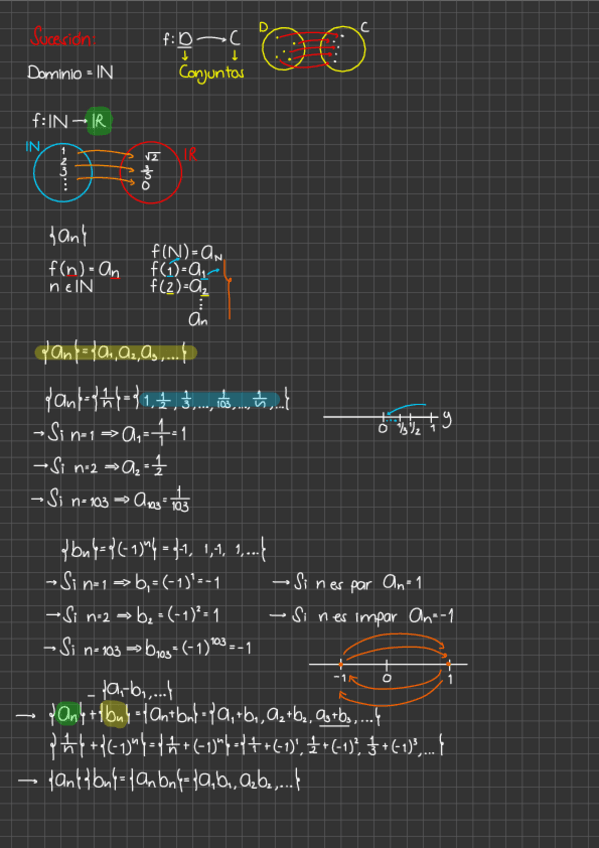 Sucesión:
f: D → C
D C
Dominio = IN
Conjuntos
f: IN → IR
IN IR
1
2
3
⋮
√2
3/5
0
{an}
f(N) = aN
f(n) = an
f(1) = a1
n ∈ IN
f(2) = a2
⋮
an
{an} = {a1, a2, a3, ...}
{an} = {1/n} = {1, 1/2, 1/3, ..., 1/103, ..., 1/n, ...}
0 1/3 1/2 1 y
→ Si n=1 ⇒ a1 = 1/1 = 1
→ Si n=2 ⇒ a2 = 1/2
→ Si n=103 ⇒ a103 = 1/103
{bn} = {(-1)^n} = {-1, 1, -1, 1, ...}
→ Si n=1 ⇒ b1 = (-1)^1 = -1
→ Si n es par an = 1
→ Si n=2 ⇒ b2 = (-1)^2 = 1
→ Si n es impar an = -1
→ Si n=103 ⇒ b103 = (-1)^103 = -1
-1 0 1
- {a1-b1, ...}
→ {an} + {bn} = {an+bn} = {a1+b1, a2+b2, a3+b3, ...}
{1/n} + {(-1)^n} = {1/n + (-1)^n} = {1/1 + (-1)^1, 1/2 + (-1)^2, 1/3 + (-1)^3, ...}
→ {an}{bn} = {an bn} = {a1b1, a2b2, ...}